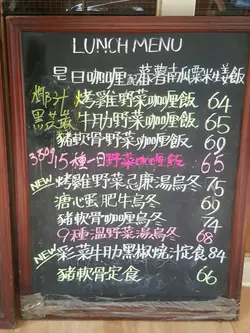 LUNCH MENU
是日咖喱配蕃薯南瓜粟米羹飯
椰汁 烤雞野菜咖喱飯 64
黑菠蘿 牛肋野菜咖喱飯 64
豬軟骨野菜咖喱飯 69
350g 15種一日野菜咖喱飯 65
NEW 烤雞野菜忌廉湯烏冬 75
溏心蛋肥牛烏冬 69
豬軟骨咖喱烏冬 74
9種溫野菜湯烏冬 68
NEW 彩菜牛肋黑椒燒汁定食 84
豬軟骨定食 66